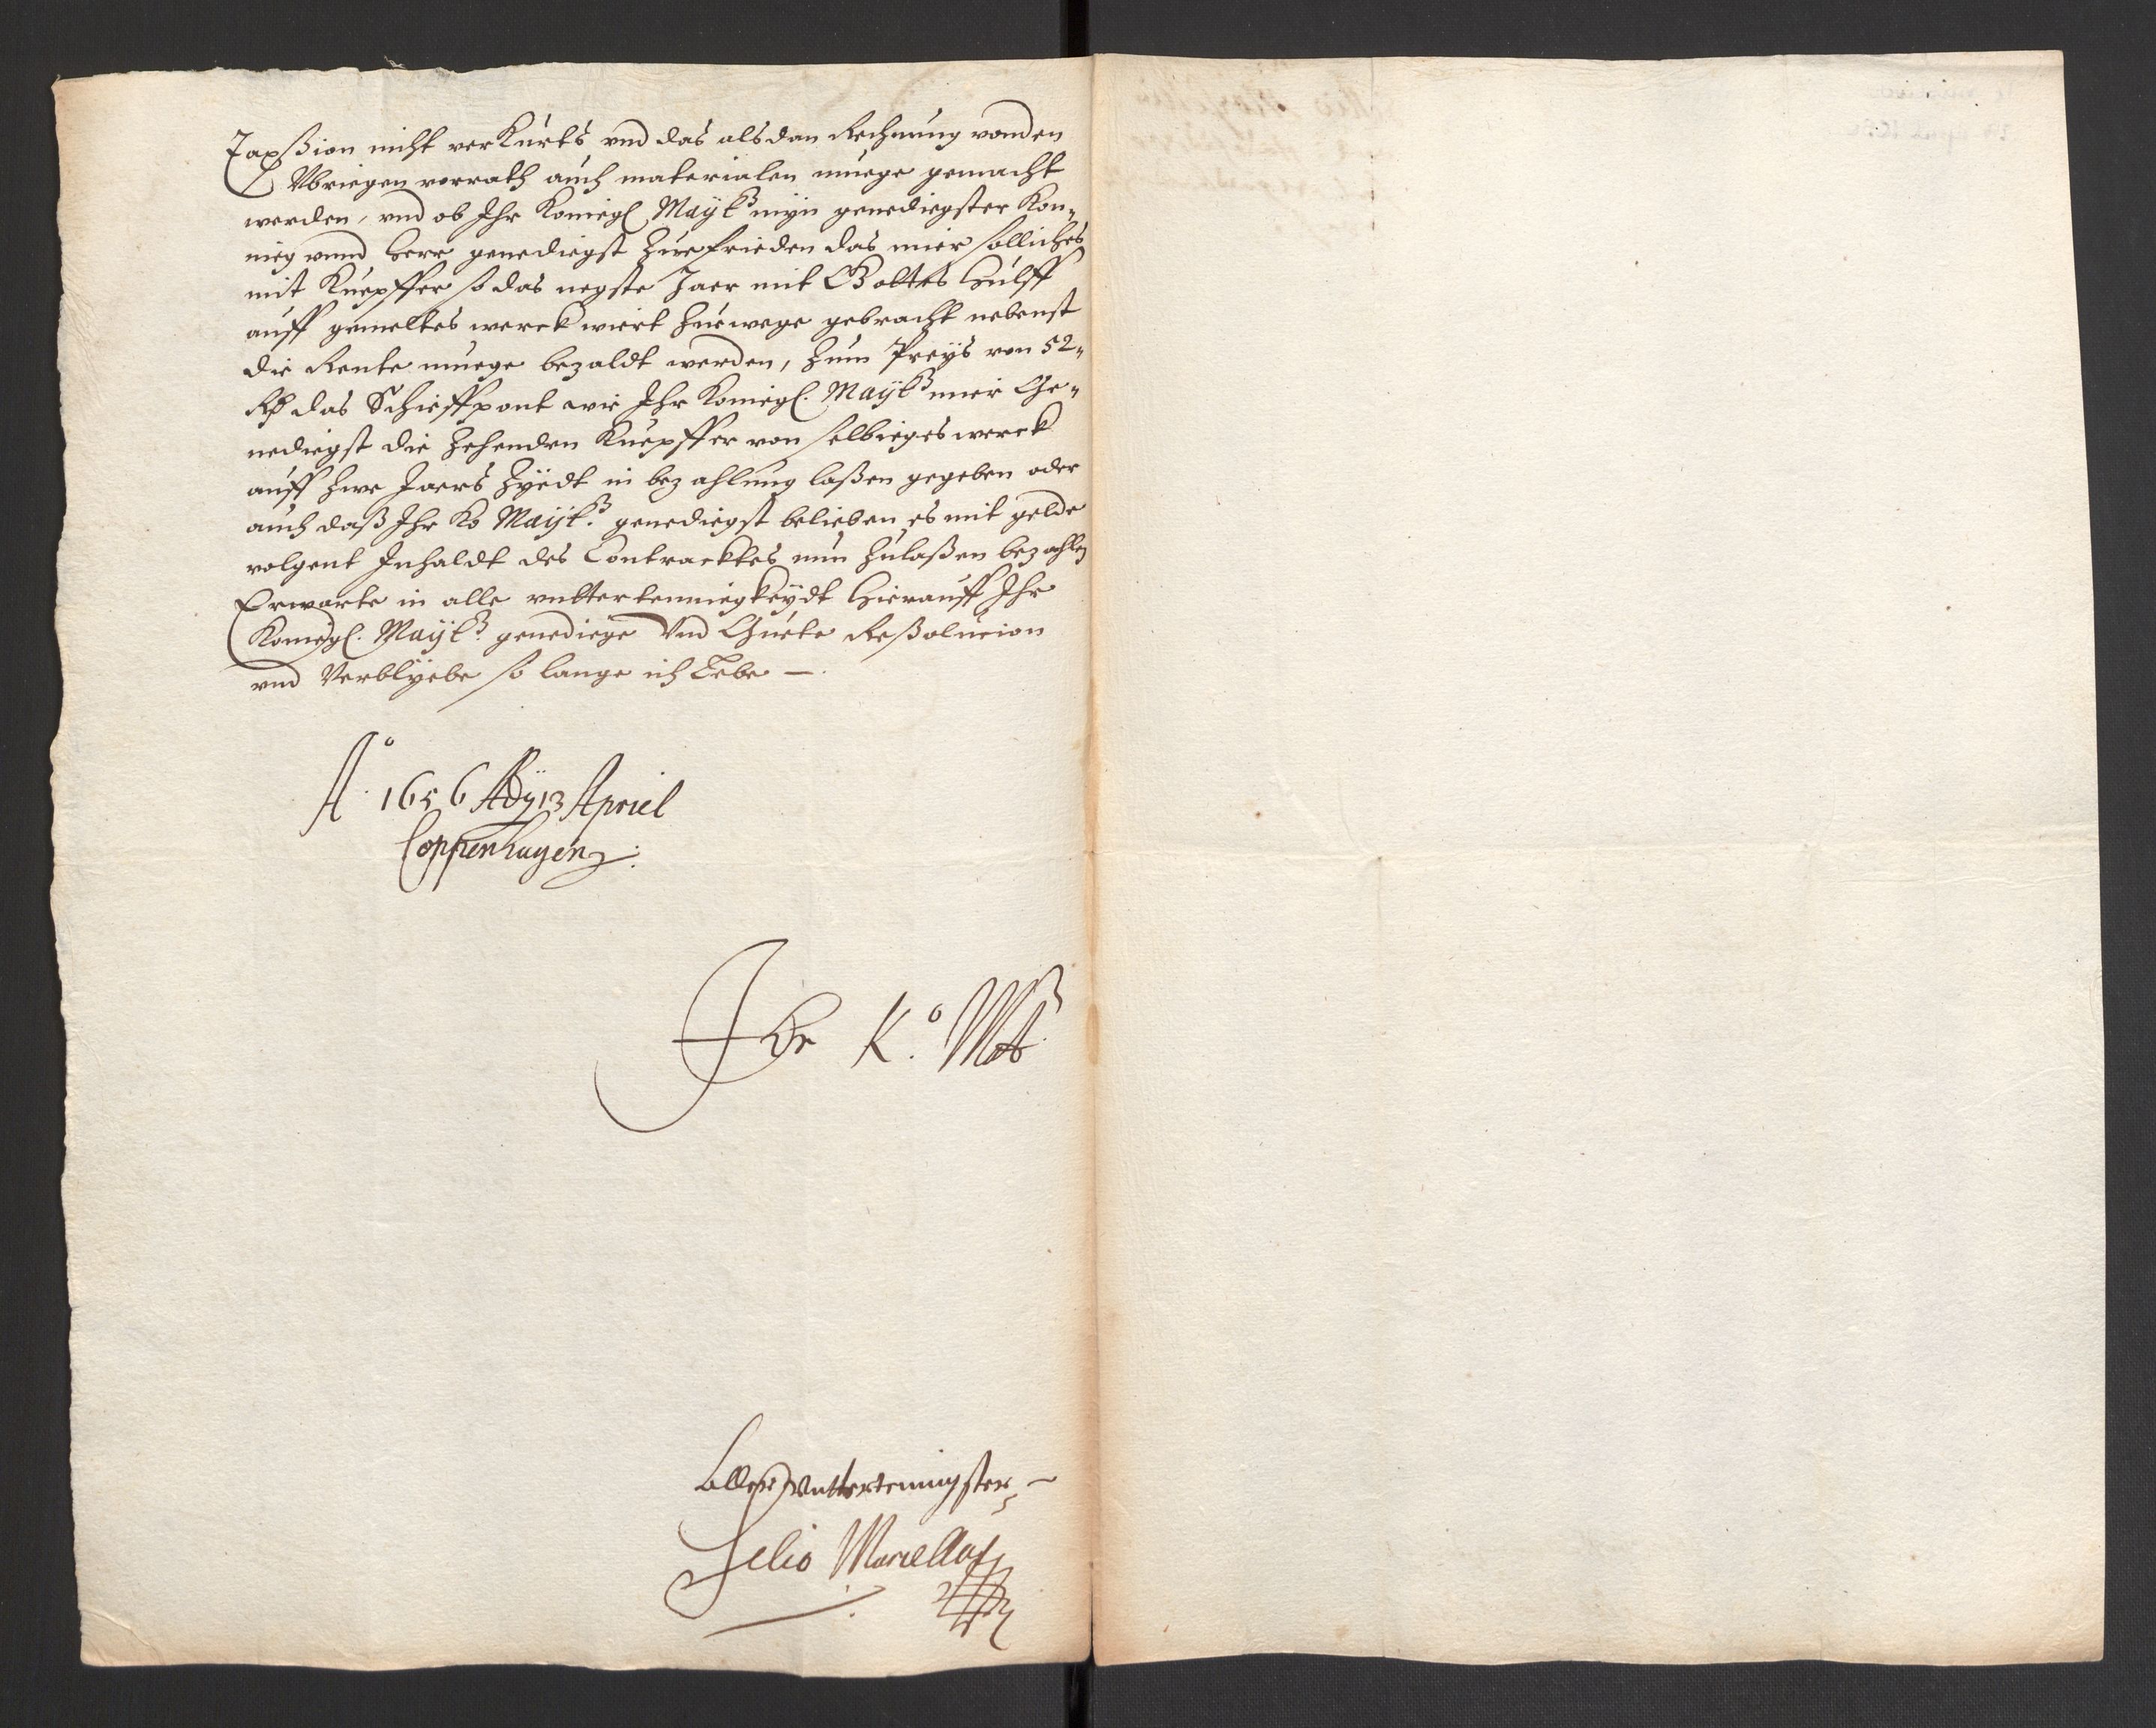 Taxßion nicht verKurts vnd das alsdan Rechnung vonden
Vbriegen vorrath auch materialen muege gemacht
werden, vnd ob Ihr Koniegl Mayt. myn genediegster Kon„
nieg vnnd Herr genediegst Zue frieden das mier solliches
mit Kuepffer so das negste Jaer mit Gottes Hulff
auff gemeltes werck wiert Zuewege gebracht nebenst
die Rente muege bezaldt werden, Zum Preys von 52„
Rd das Schieffpont wie Ihr Koniegl. Maytt mier Ge„
nediegst die Zehenden Kuepffer von selbieges werck
auff Zwe Jaers Zyedt in bezahlung laßen gegeben oder
auch daß Ihr Ko Maytt. genediegst belieben es mit gelde
volgent Inhaldt des Contracktes nun Zulaßen bezahlen
Erwarte in alle vntterteniegkeydt Hierauff Ihr
Koniegl. Maytt. genediege Vnd Guete Reßolucion
vnd Verblyebe so lange ich Lebe —
Ao. 1656 Ady 13 Apriel
Coppenhagen:
Ihr K.o Mtt
aller Vnttertenigster
Selio Marcellas